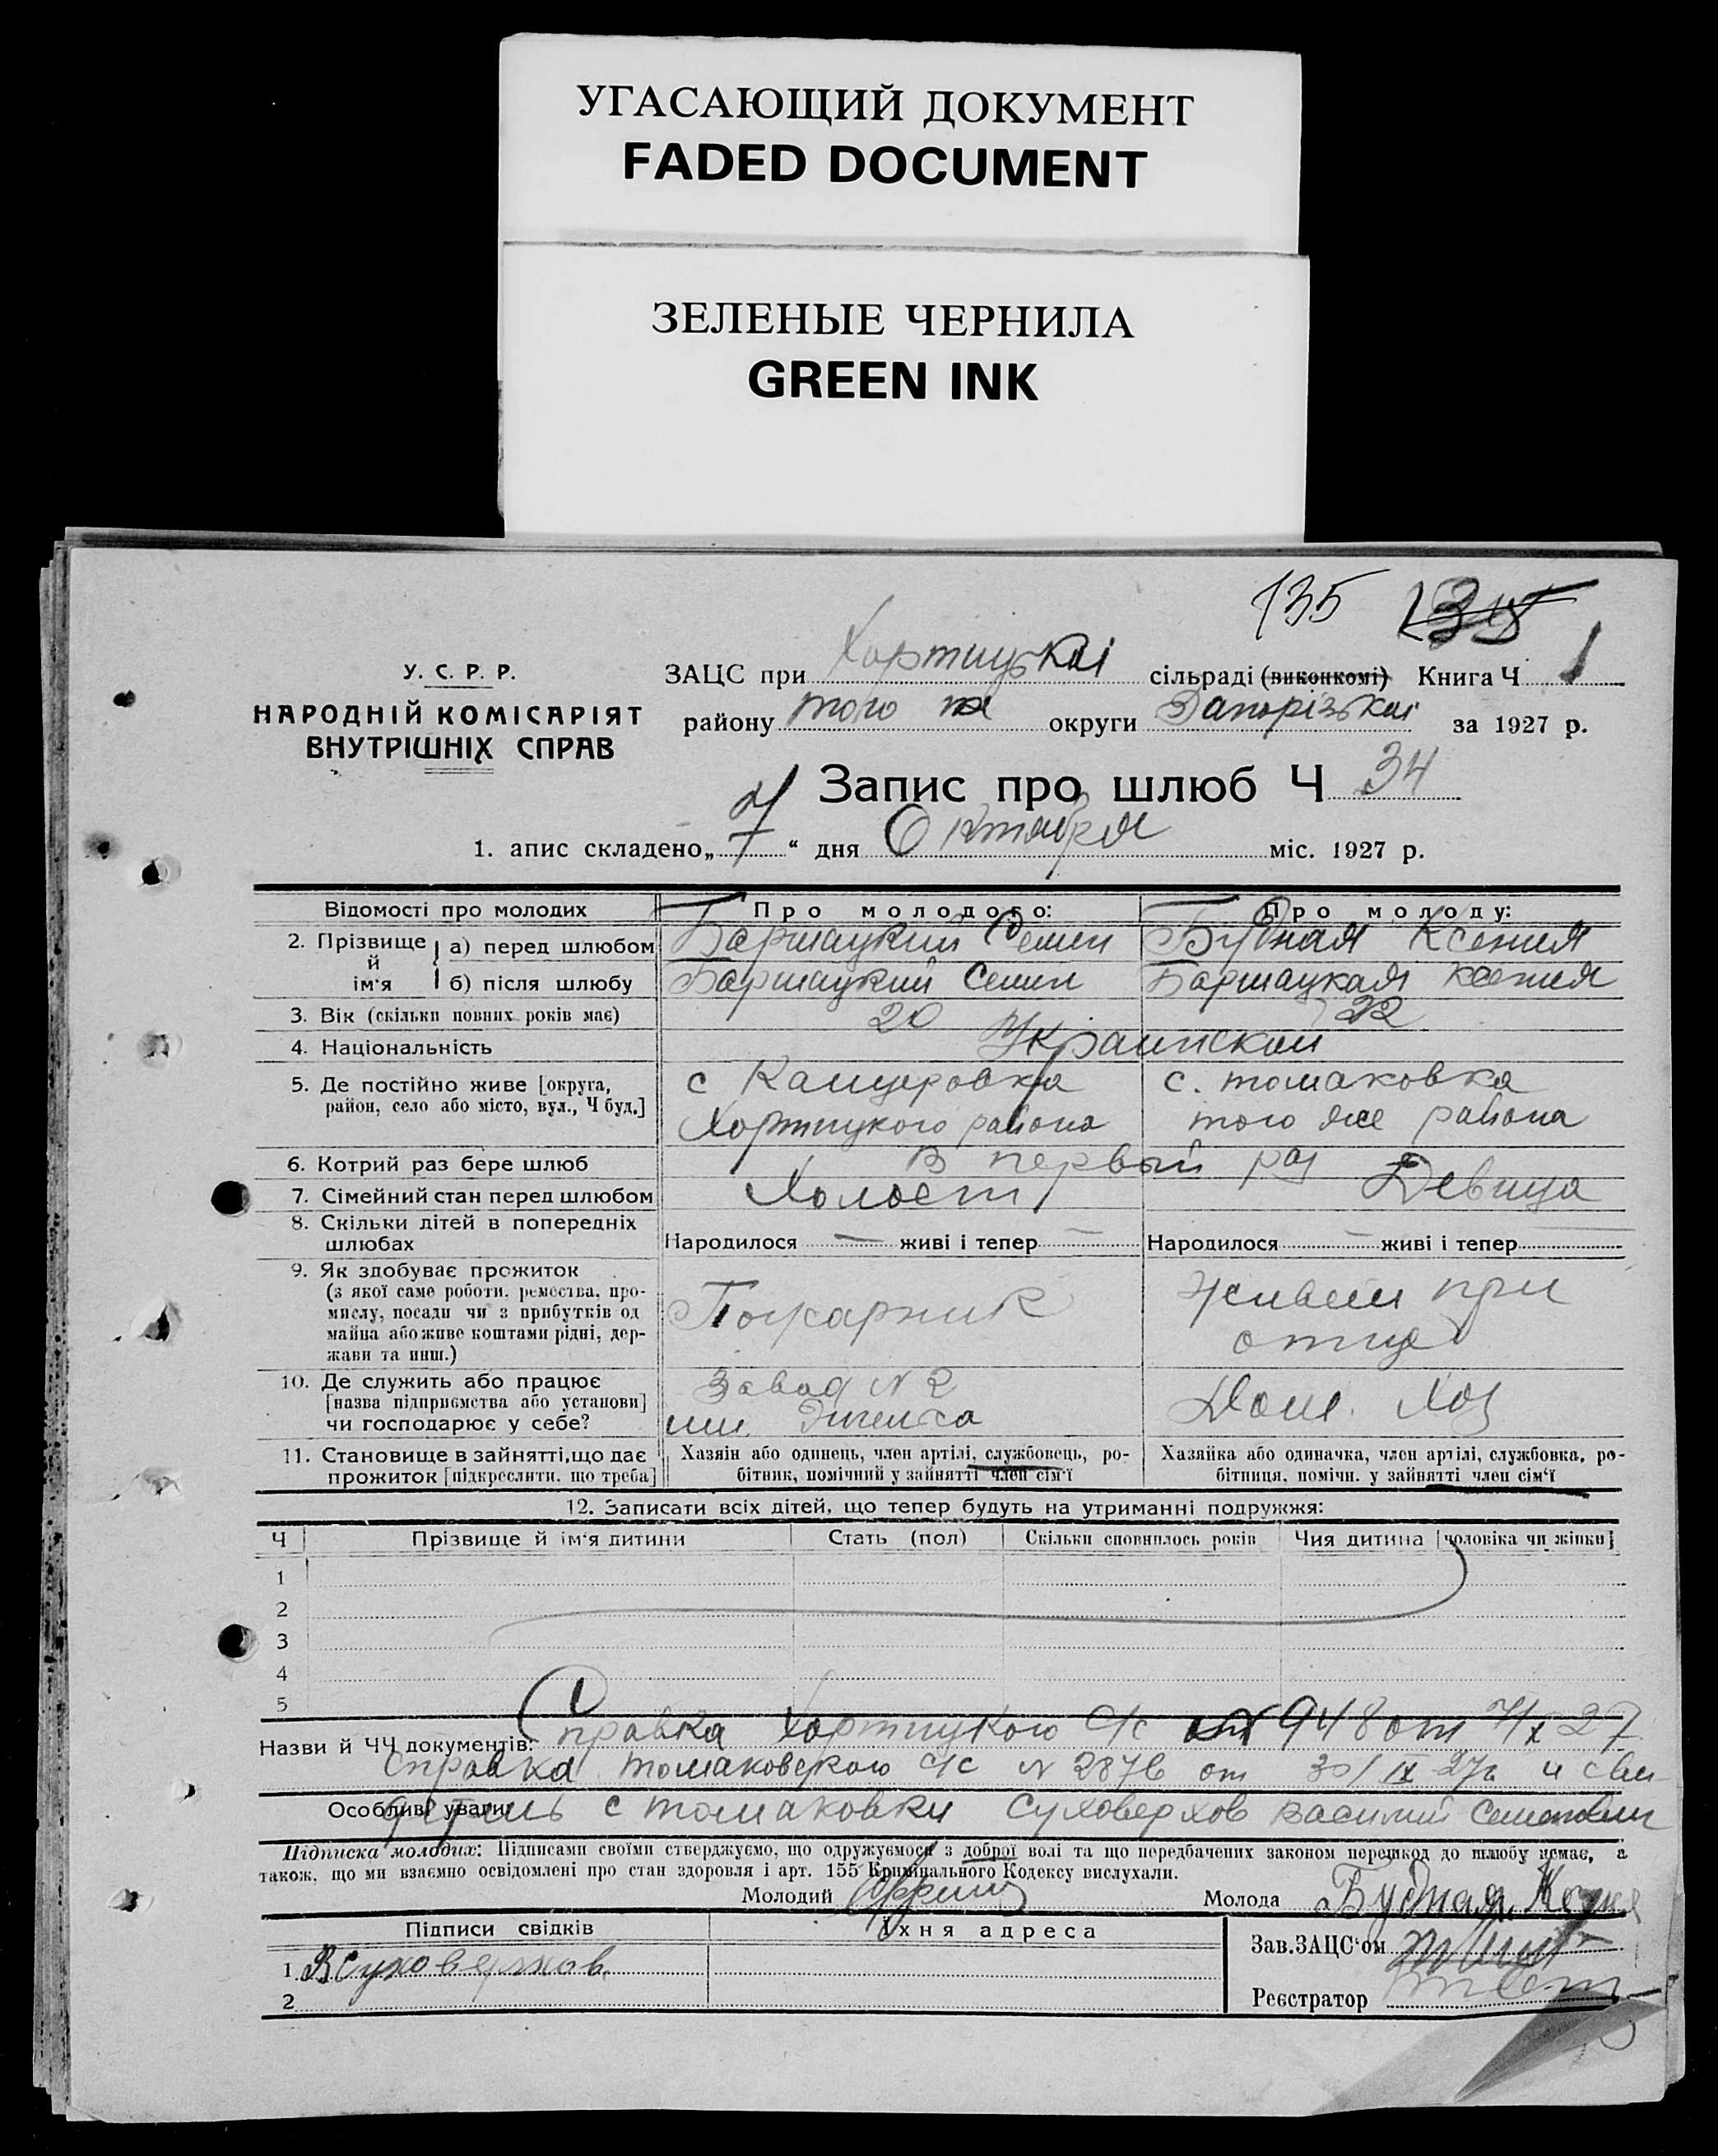 УГАСАЮЩИЙ ДОКУМЕНТ
FADED DOCUMENT
ЗЕЛЕНЫЕ ЧЕРНИЛА
GREEN INK
135 135
У. С. Р. Р.
НАРОДНІЙ КОМІСАРІЯТ
ВНУТРІШНІХ СПРАВ
ЗАЦС при Хортицькі сільраді (виконкомі) Книга Ч 1
району того ж округи Запорізькоі за 1927 р.
Запис про шлюб Ч 34
1. апис складено „ 7 “ дня Октября міс. 1927 р.
Відомості про молодих Про молодого: Про молоду:
2. Прізвище й ім'я а) перед шлюбом Баршацкий Семен Будная Ксения
б) після шлюбу Баршацкий Семен Баршацкая Ксения
3. Вік (скільки повних років має) 20 22
4. Національність Украинской
5. Де постійно живе [округа, с Канцеровка с. томаковка
район, село або місто, вул., Ч буд.] Хортицкого района того же района
6. Котрий раз бере шлюб В первый раз
7. Сімейний стан перед шлюбом Холост Девица
8. Скільки дітей в попередніх
шлюбах Народилося — живі і тепер — Народилося — живі і тепер
9. Як здобуває прожиток
(з якої саме роботи, ремества, про-
мислу, посади чи з прибутків од
майна або живе коштами рідні, дер-
жави та инш.) Пожарник Живет при
отце
10. Де служить або працює
[назва підприємства або установи]
чи господарює у себе? Завод N 2
им. Энгельса Дом. Хоз
11. Становище в зайнятті, що дає Хазяін або одинець, член артілі, службовець, ро- Хазяйка або одиначка, член артілі, службовка, ро-
прожиток [підкреслити, що треба] бітник, помічний у зайнятті член сім'ї бітниця, помічн. у зайнятті член сім'ї
12. Записати всіх дітей, що тепер будуть на утриманні подружжя:
Ч Прізвище й ім'я дитини Стать (пол) Скільки сповнилось років Чия дитина [чоловіка чи жінки]
1
2
3
4
5
Назви й ЧЧ документів: Справка Хортицкого С/с N 948 от 7/X 27
Справка томаковского с/с N 2876 от 30/IX 27г и сви-
Особливі уваги: детель с томаковки Суховерхов Василий Семенович
Підписка молодих: Підписами своїми стверджуємо, що одружуємося з доброї волі та що передбачених законом перешкод до шлюбу немає, а
також, що ми взаємно освідомлені про стан здоровля і арт. 155 Кримінального Кодексу вислухали.
Молодий Молода Будная Ксения
Підписи свідків Їхня адреса Зав.ЗАЦС'ом
1 В Суховерхов
2 Реєстратор